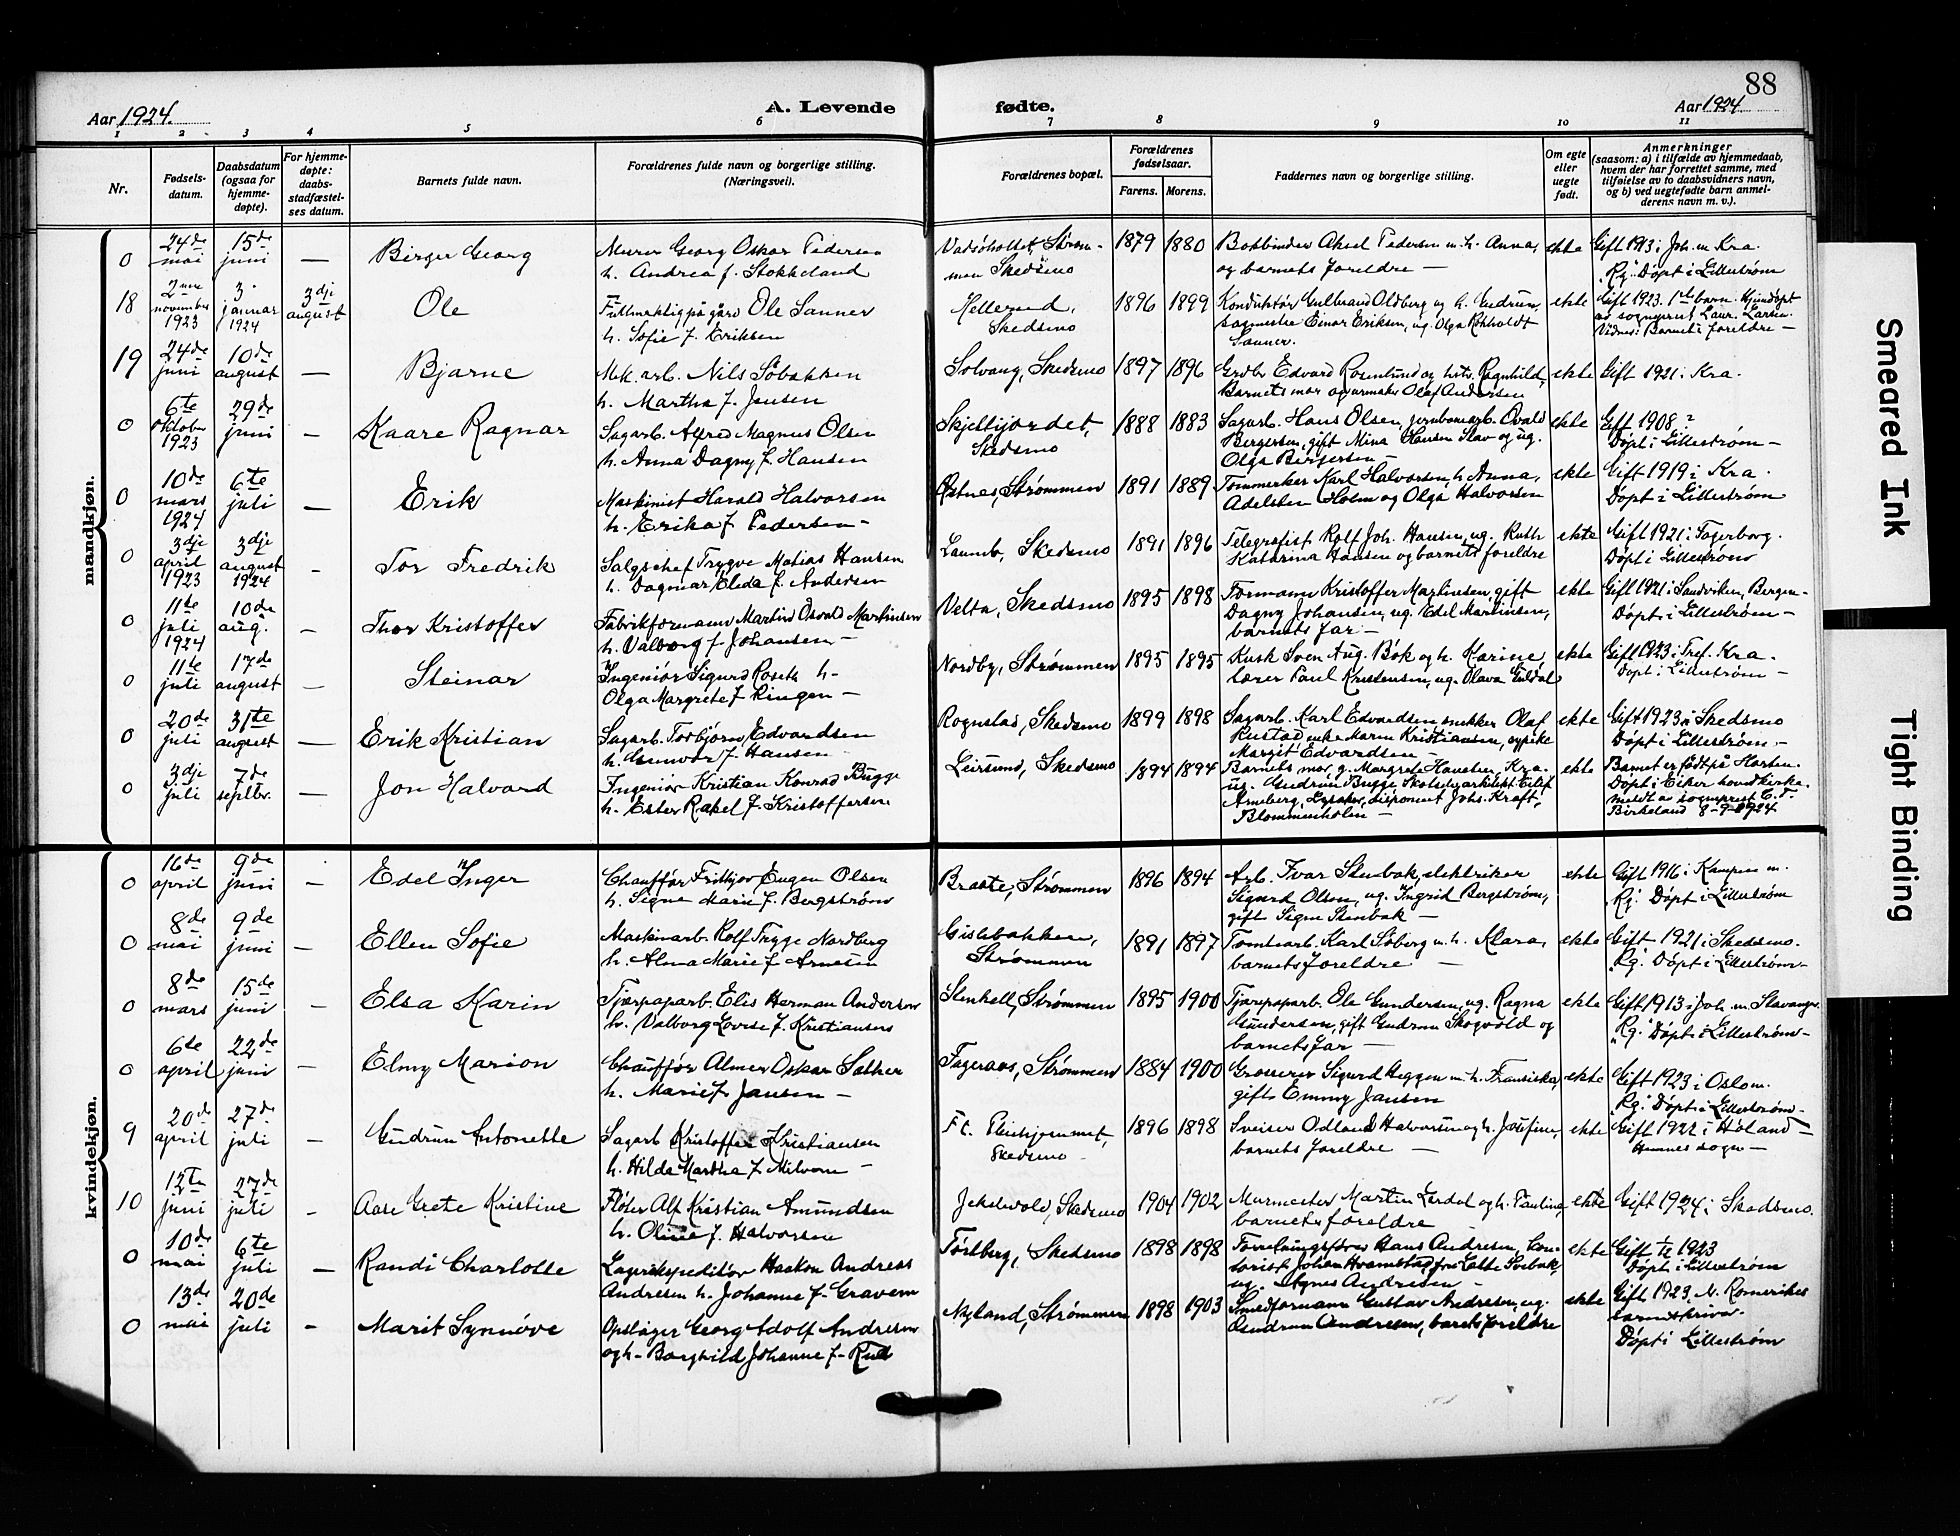 88
Aar 1924. A. Levende fødte. Aar 1924
1 2 3 4 5 6 7 8 9 10 11
Nr. Fødsels-datum. Daabsdatum (ogsaa for hjemme-døpte). For hjemme-døpte: daabs-stadfæstel-ses datum. Barnets fulde navn. Forældrenes fulde navn og borgerlige stilling. (Næringsvei). Forældrenes bopæl. Forældrenes fødselsaar. Farens. Morens. Faddernes navn og borgerlige stilling. Om egte eller uegte født. Anmerkninger (saasom: a) i tilfælde av hjemmedaab, hvem der har forrettet samme, med tilføielse av to daabsvidners navn, og b) ved uegtefødte barn anmel-derens navn m. v.).
mandkjøn.
0 24de mai 15de juni — Birger Georg
Murer Georg Oskar Pedersen
h. Andrea f. Stokkeland
Skedsmo
1879 1880
Aksel Pedersen m. h. Anna,
og barnets foreldre —
ekte
Gift 1913 i Joh. m Kra.
"Rg." Døpt i Lillestrøm
18 november 1923 3. januar 1924 3dje august Ole
Fullmektig på gård Ole Sanner
h. Sofie f. Eriksen
Hellerud, Skedsmo
1896 1899
Konduktør Gulbrand Oldberg og h. Gudrun,
sagmester Einar Eriksen, ug. Olga
Sanner.
ekte
Gift 1923. 1ste barn. Hjemdøpt
av sogneprest Laur. Larsen.
Vidner: Barnets foreldre —
19 24de juni 10de august — Bjarne
Mek. arb. Nils Søbakken
h. Martha f. Jensen
Solvang, Skedsmo
1897 1896
Edvard Rosenlund og hstr. Ragnhild,
Barnets mor og urmaker Olaf Andersen
ekte
Gift 1921 i Kra.
0 6te oktober 1923 29de juni — Kaare Ragnar
Sagarb. Alfred Magnus Olsen
h. Anna Dagny f. Hansen
Skjettjordet, Skedsmo
1888 1883
Sagarb. Hans Olsen, jernbanearb. Osvald
Bergersen, gift Mina Hansen Slav og ug.
Olga Bergersen —
ekte
Gift 1908?
Døpt i Lillestrøm —
0 10de mars 1924 6te juli — Erik
Maskinist Harald Halvorsen
h. Erika f. Pedersen —
Østnes, Strømmen
1891 1889
Tømmerkar Karl Halvorsen, h. Anna,
Adelsten Holm og Olga Halvorsen
ekte
Gift 1919 i Kra.
Døpt i Lillestrøm
0 3dje april 1923 3dje august 1924 — Tor Fredrik
Salgschef Trygve Matias Hansen
h. Dagmar Elida f. Andersen
Skedsmo
1891 1896
Telegrafist Rolf Joh. Hansen, ug. Ruth
Katharina Hansen og barnets foreldre
ekte
Gift 1921 i Fagerborg.
Døpt i Lillestrøm
0 11te juli 1924 10de aug. — Thor Kristoffer
Fabrikformann Martin Osvald Martinsen
h. Valborg f. Johansen —
Velta, Skedsmo
1895 1898
Formann Kristoffer Martinsen, gift
Dagny Johansen, ug. Edel Martinsen,
barnets far —
ekte
Gift 1921 i Sandviken, Bergen —
Døpt i Lillestrøm —
0 11te juli 17de august — Steinar
Ingeniør Sigurd Roseth h.
Olga Margrete f. Ringen —
Nordby, Strømmen
1895 1895
Kusk Sven Aug. Bøk og h. Karine,
lærer Paul Kristensen, ug. Olava Guldal
ekte
Gift 1923 i Tref. Kra.
Døpt i Lillestrøm —
0 20de juli 31te august — Erik Kristian
Sagarb. Torbjørn Edvardsen
h. Gunvor f. Hansen
Rognstad, Skedsmo
1899 1898
Sagarb. Karl Edvardsen, snekker Olaf
Rustad, enke Maren Kristiansen, sypike
Margit Edvardsen —
ekte
Gift 1923 i Skedsmo
Døpt i Lillestrøm —
0 3dje juli 7de septbr. — Jon Halvard
Ingeniør Kristian Konrad Bugge
h. Ester Rakel f. Kristoffersen
Leirsund, Skedsmo
1894 1894
Barnets mor, g. Margrete Kra.
ug. Gudrun Bugge arkitekt Eilif
Arneberg, Lysaker, disponent Johs. Kraft,
Blommenholm —
ekte
Barnet er født på Horten.
Døpt i Eiker hovedkirke
meldt av sogneprest C. F.
Birkeland 8-9-1924
kvindekjøn.
0 16de april 9de juni — Edel Inger
Chauffør Fritthjov Eugen Olsen
h. Signe Marie f. Bergstrøm
Braate, Strømmen
1896 1894
Arb. Ivar Stenbak, elektriker
Sigurd Olsen, ug. Ingrid Bergstrøm,
gift Signe Stenbak —
ekte
Gift 1916 i Kampen m.
Rg. Døpt i Lillestrøm
0 8de mai 9de juni — Ellen Sofie
Maskinarb. Rolf Trygve Nordberg
h. Alma Marie f. Arnesen
Gislebakken, Strømmen
1891 1897
Tomtearb. Karl Søberg m. h. Klara,
barnets foreldre —
ekte
Gift 1921 i Skedsmo.
"Rg." Døpt i Lillestrøm —
0 8de mars 15de juni — Elsa Karin
Tjærpaparb. Elis Herman Andersen
h. Valborg Lovise f. Kristiansen
Stenhell, Strømmen
1895 1900
Tjærepaparb. Ole Gundersen, ug. Ragna
Gundersen, gift Gudrun Skogvold og
barnets far —
ekte
Gift 1913 i Joh. m. Stavanger.
"Rg." Døpt i Lillestrøm —
0 6te april 22de juni — Elmy Marion
Chauffør Almer Oskar Sæther
h. Marie f. Jansen —
Fageraas, Strømmen
1884 1900
Grosserer Sigurd Heggen m. h. Fransiska,
gift Emmy Jansen
ekte
Gift 1923 i Oslo m.
"Rg." Døpt i Lillestrøm —
9 20de april 27de juli — Gudrun Antonette
Sagarb. Kristoffer Kristiansen
h. Hilda Martha f. Milvern —
Skedsmo —
1896 1898
Sveiser Odland Halvorsen og h. Josefine,
barnets foreldre —
ekte
Gift 1922 i Høland —
Hemnes sogn —
10 12te juni 27de juli — Aase Grete Kristine
Fløter Alf Kristian Amundsen
h. Oline f. Halvorsen
Jekslevold, Skedsmo
1904 1902
Murmester Martin Lerdal og h. Pauline,
barnets foreldre —
ekte
Gift 1924 i Skedsmo.
0 10de mai 6te juli — Randi Charlotte
Lagerekspeditør Haakon Andreas
Andresen h. Johanne f. Gravem
Tørtberg, Skedsmo
1898 1898
Forretningsfører Hans Andresen, kon-
torist Johan
ug. Agnes Andresen —
ekte
Gift 1923
Døpt i Lillestrøm
0 13de mai 20de juli — Marit Synnöve
Opslager Georg Adolf Andresen
og h. Borghild Johanne f. Rud
Nyland, Strømmen
1898 1903
Smedformann Gustav Andresen, ug.
Gudrun Andresen, barnets foreldre
ekte
Gift 1923. N. Romerikes
sorenskriver.
Døpt i Lillestrøm
Smeared Ink
Tight Binding